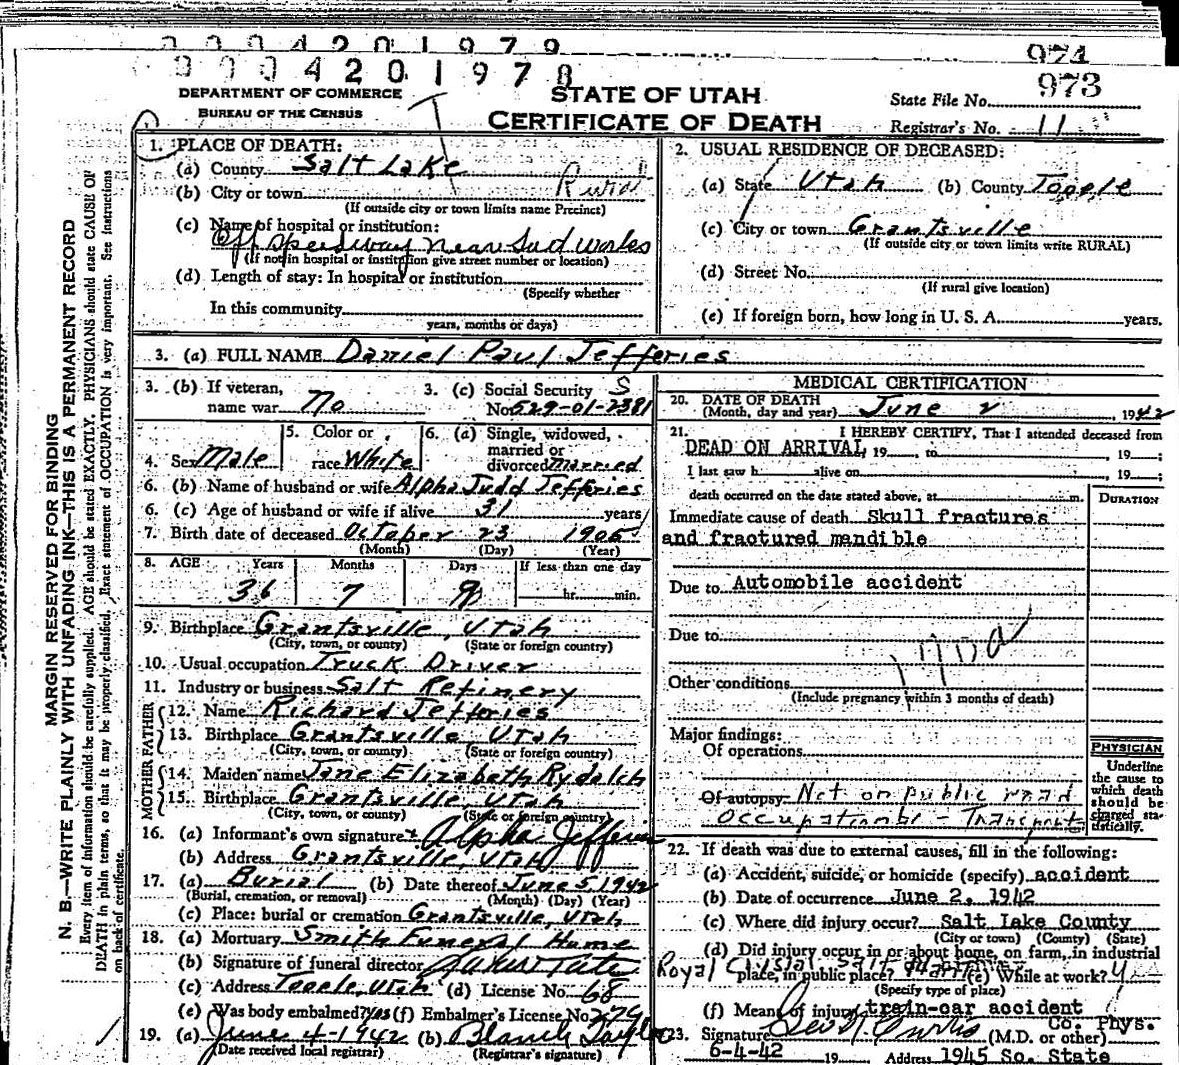 0004201979
974
0004201978
973
DEPARTMENT OF COMMERCE
BUREAU OF THE CENSUS
STATE OF UTAH
CERTIFICATE OF DEATH
State File No.
Registrar's No. 11
MARGIN RESERVED FOR BINDING
N. B—WRITE PLAINLY WITH UNFADING INK—THIS IS A PERMANENT RECORD
Every item of information should be carefully supplied. AGE should be stated EXACTLY. PHYSICIANS should state CAUSE OF
DEATH in plain terms, so that it may be properly classified. Exact statement of OCCUPATION is very important. See instructions
on back of certificate.
1. PLACE OF DEATH:
(a) County Salt Lake
(b) City or town Rural
(If outside city or town limits name Precinct)
(c) Name of hospital or institution:
Off Speedway near Sud works
(If not in hospital or institution give street number or location)
(d) Length of stay: In hospital or institution
(Specify whether
In this community
years, months or days)
2. USUAL RESIDENCE OF DECEASED:
(a) State Utah (b) County Tooele
(c) City or town Grantsville
(If outside city or town limits write RURAL)
(d) Street No.
(If rural give location)
(e) If foreign born, how long in U. S. A. years.
3. (a) FULL NAME Daniel Paul Jefferies
3. (b) If veteran, name war No
3. (c) Social Security S
No. 529-01-2381
4. Sex Male
5. Color or race White
6. (a) Single, widowed, married or divorced Married
6. (b) Name of husband or wife Alpha Judd Jefferies
6. (c) Age of husband or wife if alive 31 years
7. Birth date of deceased October 23 1905
(Month) (Day) (Year)
8. AGE Years Months Days If less than one day
36 7 9 hr. min.
9. Birthplace Grantsville, Utah
(City, town, or county) (State or foreign country)
10. Usual occupation Truck Driver
11. Industry or business Salt Refinery
FATHER
12. Name Richard Jefferies
13. Birthplace Grantsville Utah
(City, town, or county) (State or foreign country)
MOTHER
14. Maiden name Jane Elizabeth Rydalch
15. Birthplace Grantsville, Utah
(City, town, or county) (State or foreign country)
16. (a) Informant's own signature Alpha Jefferies
(b) Address Grantsville, Utah
17. (a) Burial (b) Date thereof June 5 1942
(Burial, cremation, or removal) (Month) (Day) (Year)
(c) Place: burial or cremation Grantsville, Utah
18. (a) Mortuary Smith Funeral Home
(b) Signature of funeral director Tate
(c) Address Tooele, Utah (d) License No. 68
(e) Was body embalmed? Yes (f) Embalmer's License No. 279
19. (a) June 4-1942 (b) Blanch Taylor
(Date received local registrar) (Registrar's signature)
MEDICAL CERTIFICATION
20. DATE OF DEATH
(Month, day and year) June 2, 1942
21. I HEREBY CERTIFY, That I attended deceased from
DEAD ON ARRIVAL, 19 to , 19 ;
I last saw h alive on , 19 ;
death occurred on the date stated above, at m.
DURATION
Immediate cause of death Skull fractures
and fractured mandible
Due to Automobile accident
Due to
170a
Other conditions
(Include pregnancy within 3 months of death)
Major findings:
Of operations
Of autopsy Not on public road
Occupational - Transport
PHYSICIAN
Underline
the cause to
which death
should be
charged sta-
tistically.
22. If death was due to external causes, fill in the following:
(a) Accident, suicide, or homicide (specify) accident
(b) Date of occurrence June 2, 1942
(c) Where did injury occur? Salt Lake County
(City or town) (County) (State)
(d) Did injury occur in or about home, on farm, in industrial
Royal Crystal Salt
place, in public place? While at work? Y
(Specify type of place)
(f) Means of injury train-car accident
23. Signature Geo N. Curtis Co. Phys.
(M.D. or other)
6-4-42 19 Address 1945 So. State